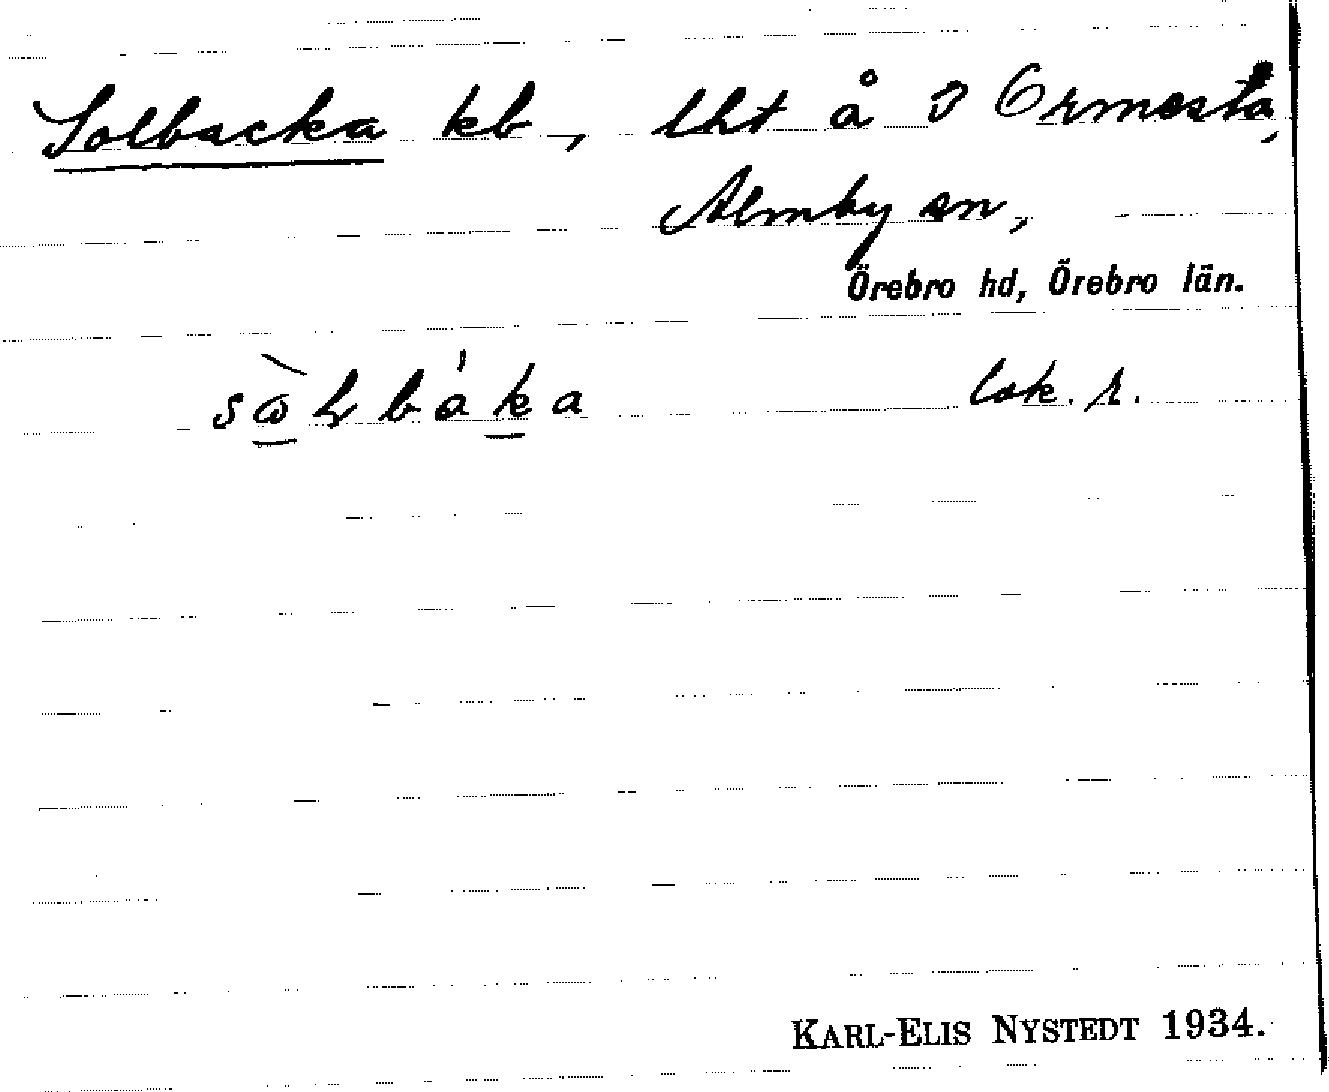 Solbacka kb, lht å Ormesta,
Almby sn,
Örebro hd, Örebro län.
lok. r.
KARL-ELIS NYSTEDT 1934.